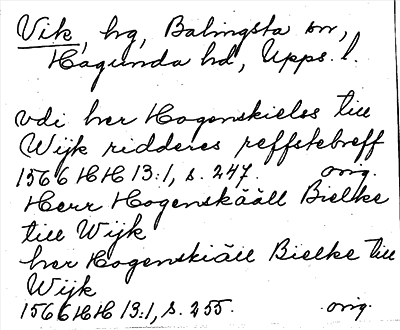 Vik, hg, Balingsta sn,
Hagunda hd, Upps. l.
vdi her Hogenskielss till
Wijk ridderes reffstebreff
1566 HH 13:1, s. 247. orig.
Herr Hogenskääll Bielke
till Wijk
her Hogenskiäll Bielke till
Wijk
1566 HH 13:1, s. 255. orig.